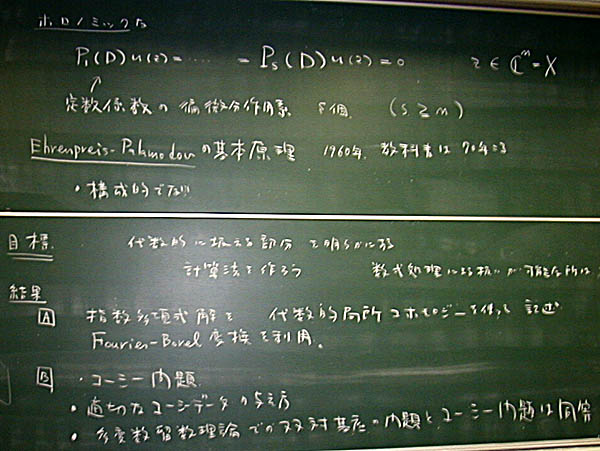 ホロノミックな
P₁(D)u(z)= ‥‥‥ = Pₛ(D)u(z)=0 z ∈ ℂⁿ = X
定数係数の偏微分作用素 s個. (s ≧ n)
Ehrenpreis-Palamodov の基本原理 1960年. 教科書は 70年ころ
・構成的でない
目標. 代数的に扱える部分を明らかにする
計算法を作ろう 数式処理による扱いが可能な所は
結果
A 指数多項式解を 代数的局所コホモロジーを使って 記述
Fourier-Borel 変換を利用。
B ・コーシー問題
・適切なコーシーデータの与え方
・多変数留数理論での双対基底の問題とコーシー問題は同等